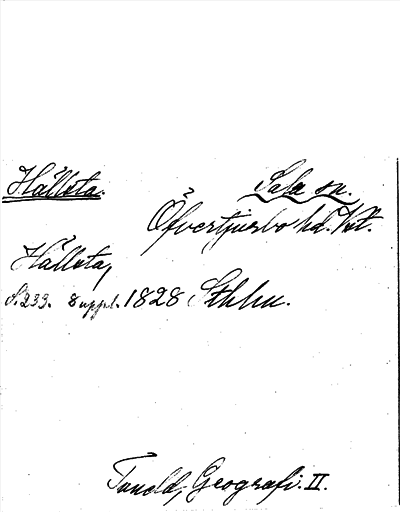 Hållsta. Sala sn.
Öfvertjurbo hd. Vstm.
Hållsta,
S. 233. 8 uppl. 1828 Sthlm.
Tuneld, Geografi. II.